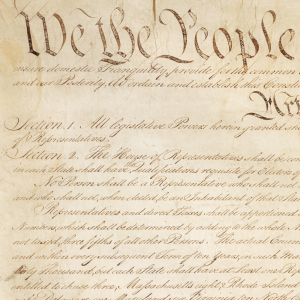 We the People
insure domestic Tranquility, provide for the common
and our Posterity, do ordain and establish this Const
Section. 1. All legislative Powers herein granted shall
of Representatives.
Section. 2. The House of Representatives shall be com
in each State shall have Qualifications requisite for Electors of
No Person shall be a Representative who shall not
and who shall not, when elected, be an Inhabitant of that State
Representatives and direct Taxes shall be apportioned
Numbers, which shall be determined by adding to the whole Num
not taxed, three fifths of all other Persons. The actual Enumer
and within every subsequent Term of ten Years, in such Man
thirty Thousand, but each State shall have at Least one Rep
entitled to chuse three, Massachusetts eight, Rhode Island